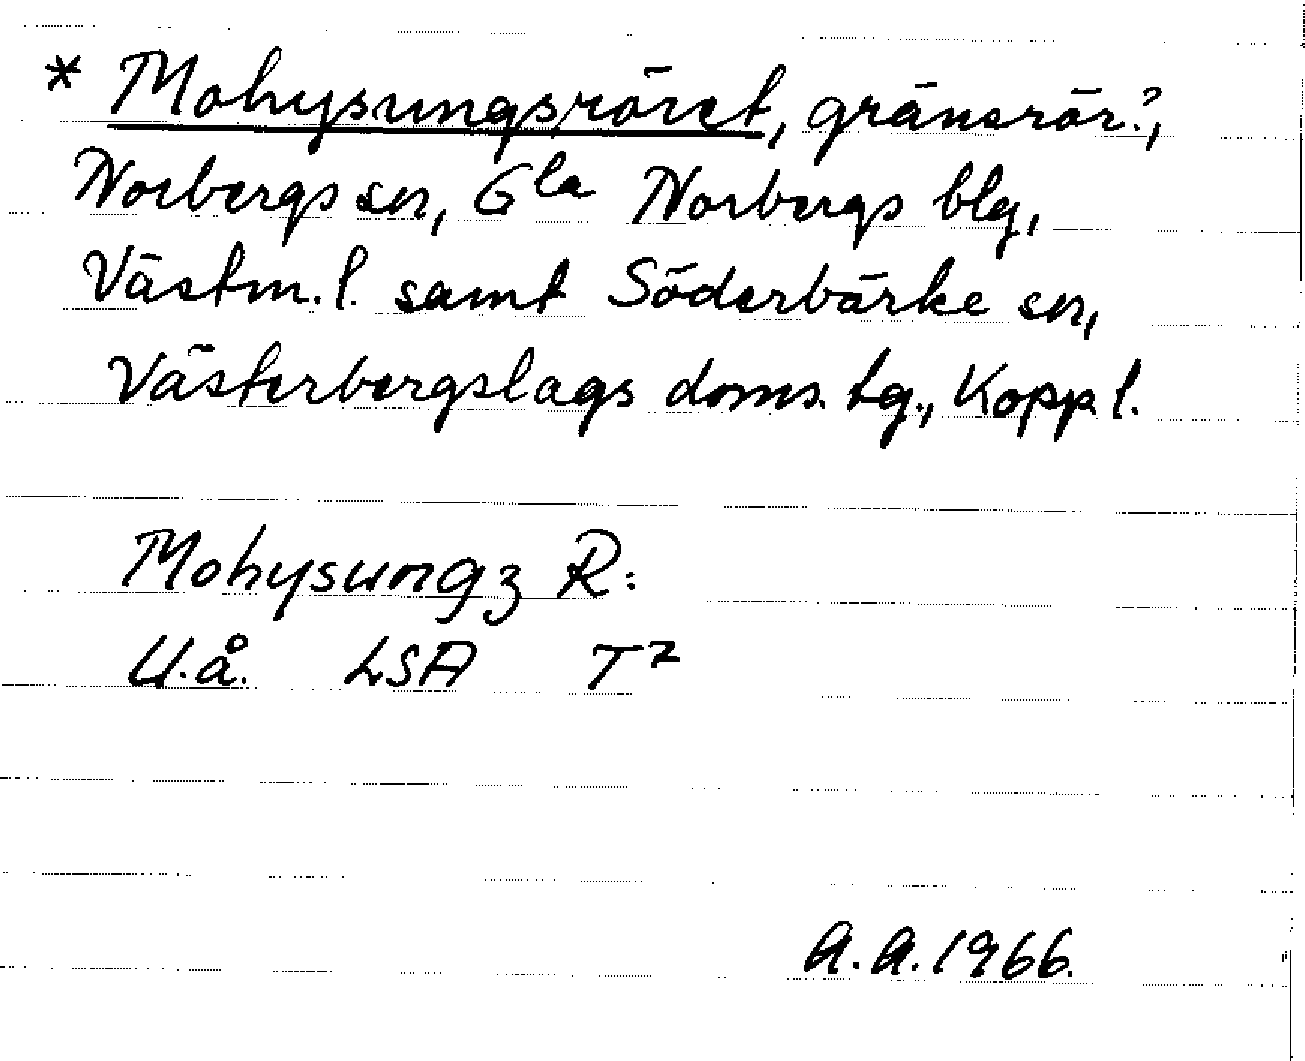 * Mohysungsröret, gränsrör?,
Norbergs sn, Gla Norbergs blg,
Västm. l. samt Söderbärke sn,
Västerbergslags doms. tg., Kopp l.
Mohysungz R:
U.å. LSA T2
A.A. 1966.